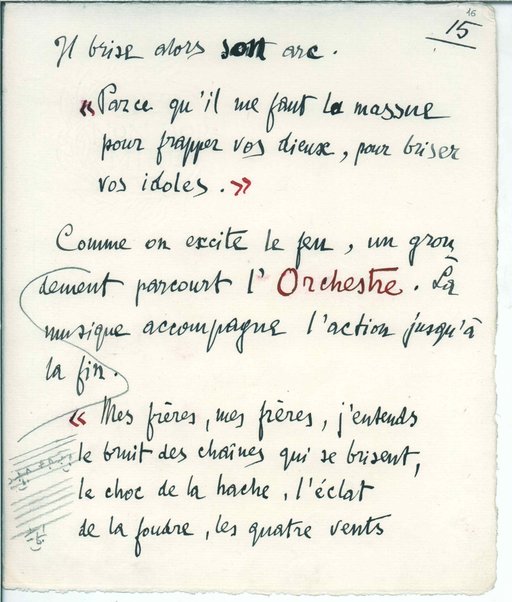 16
15
Il brise alors son arc.
« Parce qu'il me faut la massue
pour frapper vos dieux, pour briser
vos idoles. »
Comme on excite le feu, un gron
dement parcourt l'Orchestre. La
musique accompagne l'action jusqu'à
la fin.
« Mes frères, mes frères, j'entends
le bruit des chaînes qui se brisent,
le choc de la hache, l'éclat
de la foudre, les quatre vents